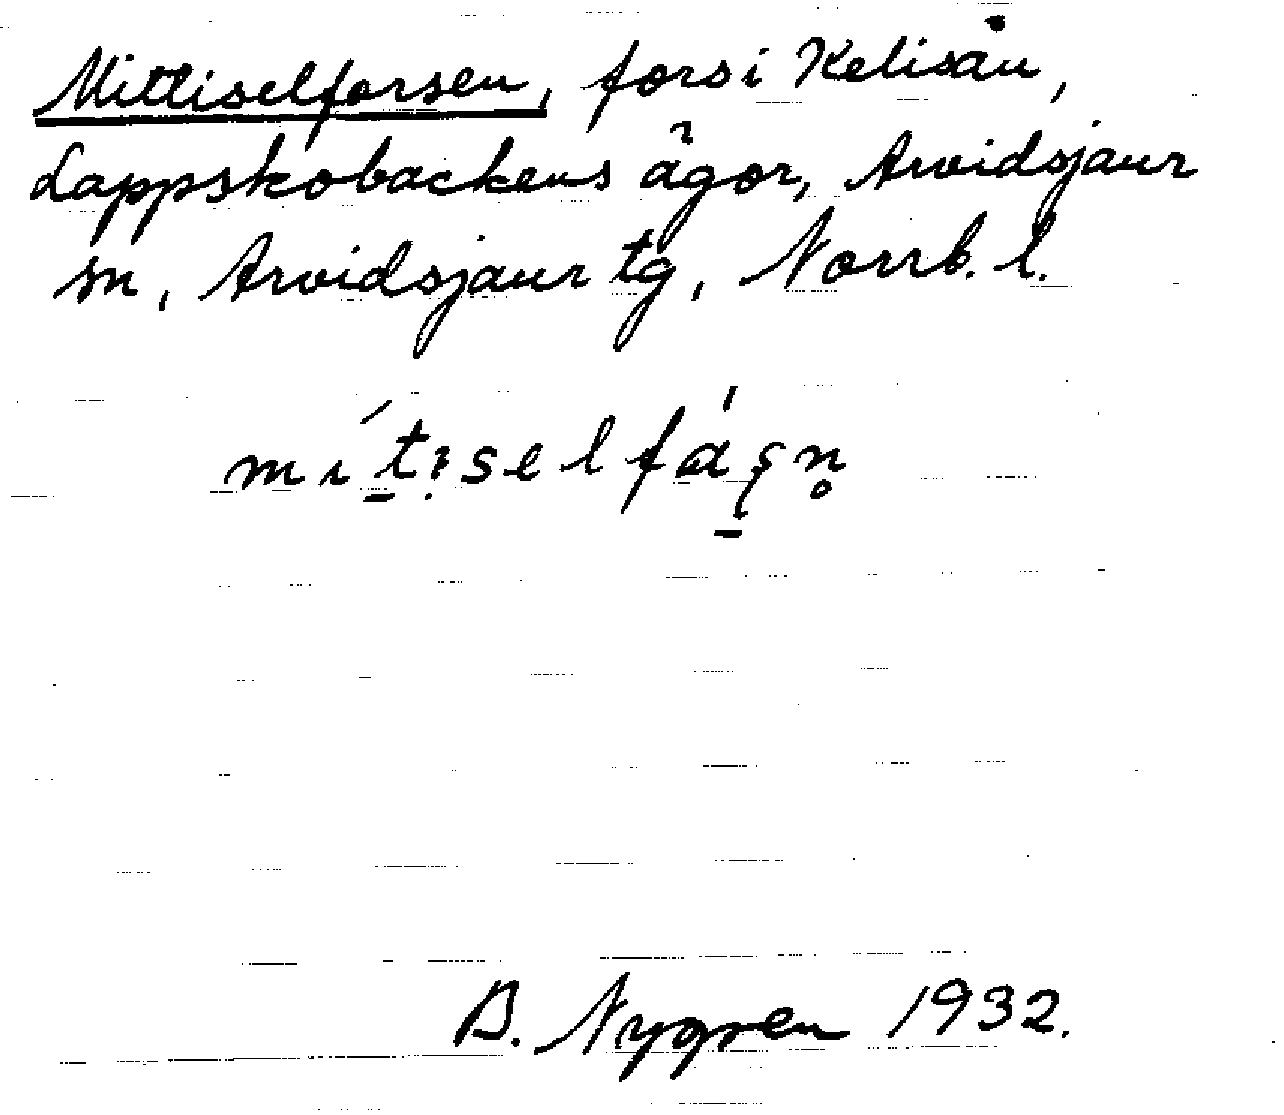 Mittiselforsen, fors i Kelisån,
Lappskobackens ägor, Arvidsjaur
sn, Arvidsjaur tg, Norrb. l.
B. Nygren 1932.